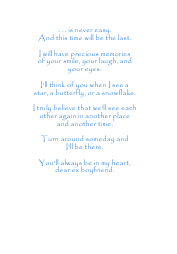 . . . is never easy.
And this time will be the last.
I will have precious memories
of your smile, your laugh, and
your eyes.
I'll think of you when I see a
star, a butterfly, or a snowflake.
I truly believe that we'll see each
other again in another place
and another time.
Turn around someday and
I'll be there.
You'll always be in my heart,
dear ex boyfriend.